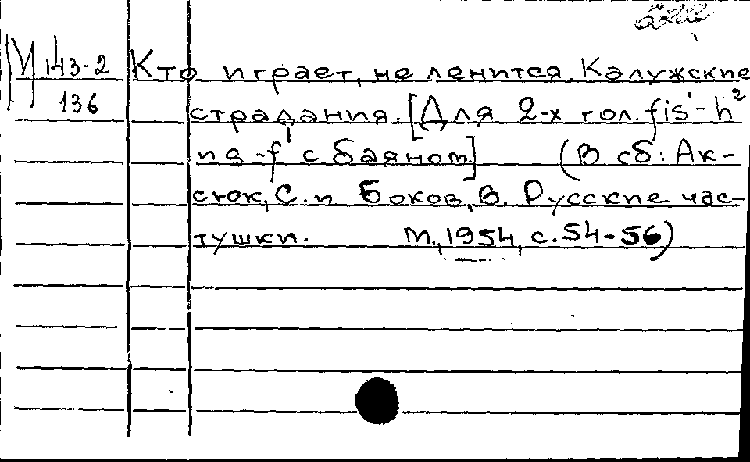 М 143-2 Кто играет, не ленится. Калужские
136 страдания. [Для 2-х гол. fis'-h²
и a-f' с баяном] (В сб: Ак-
сюк, С. и Боков, В. Русские час-
тушки. М., 1954, с. 54-56)